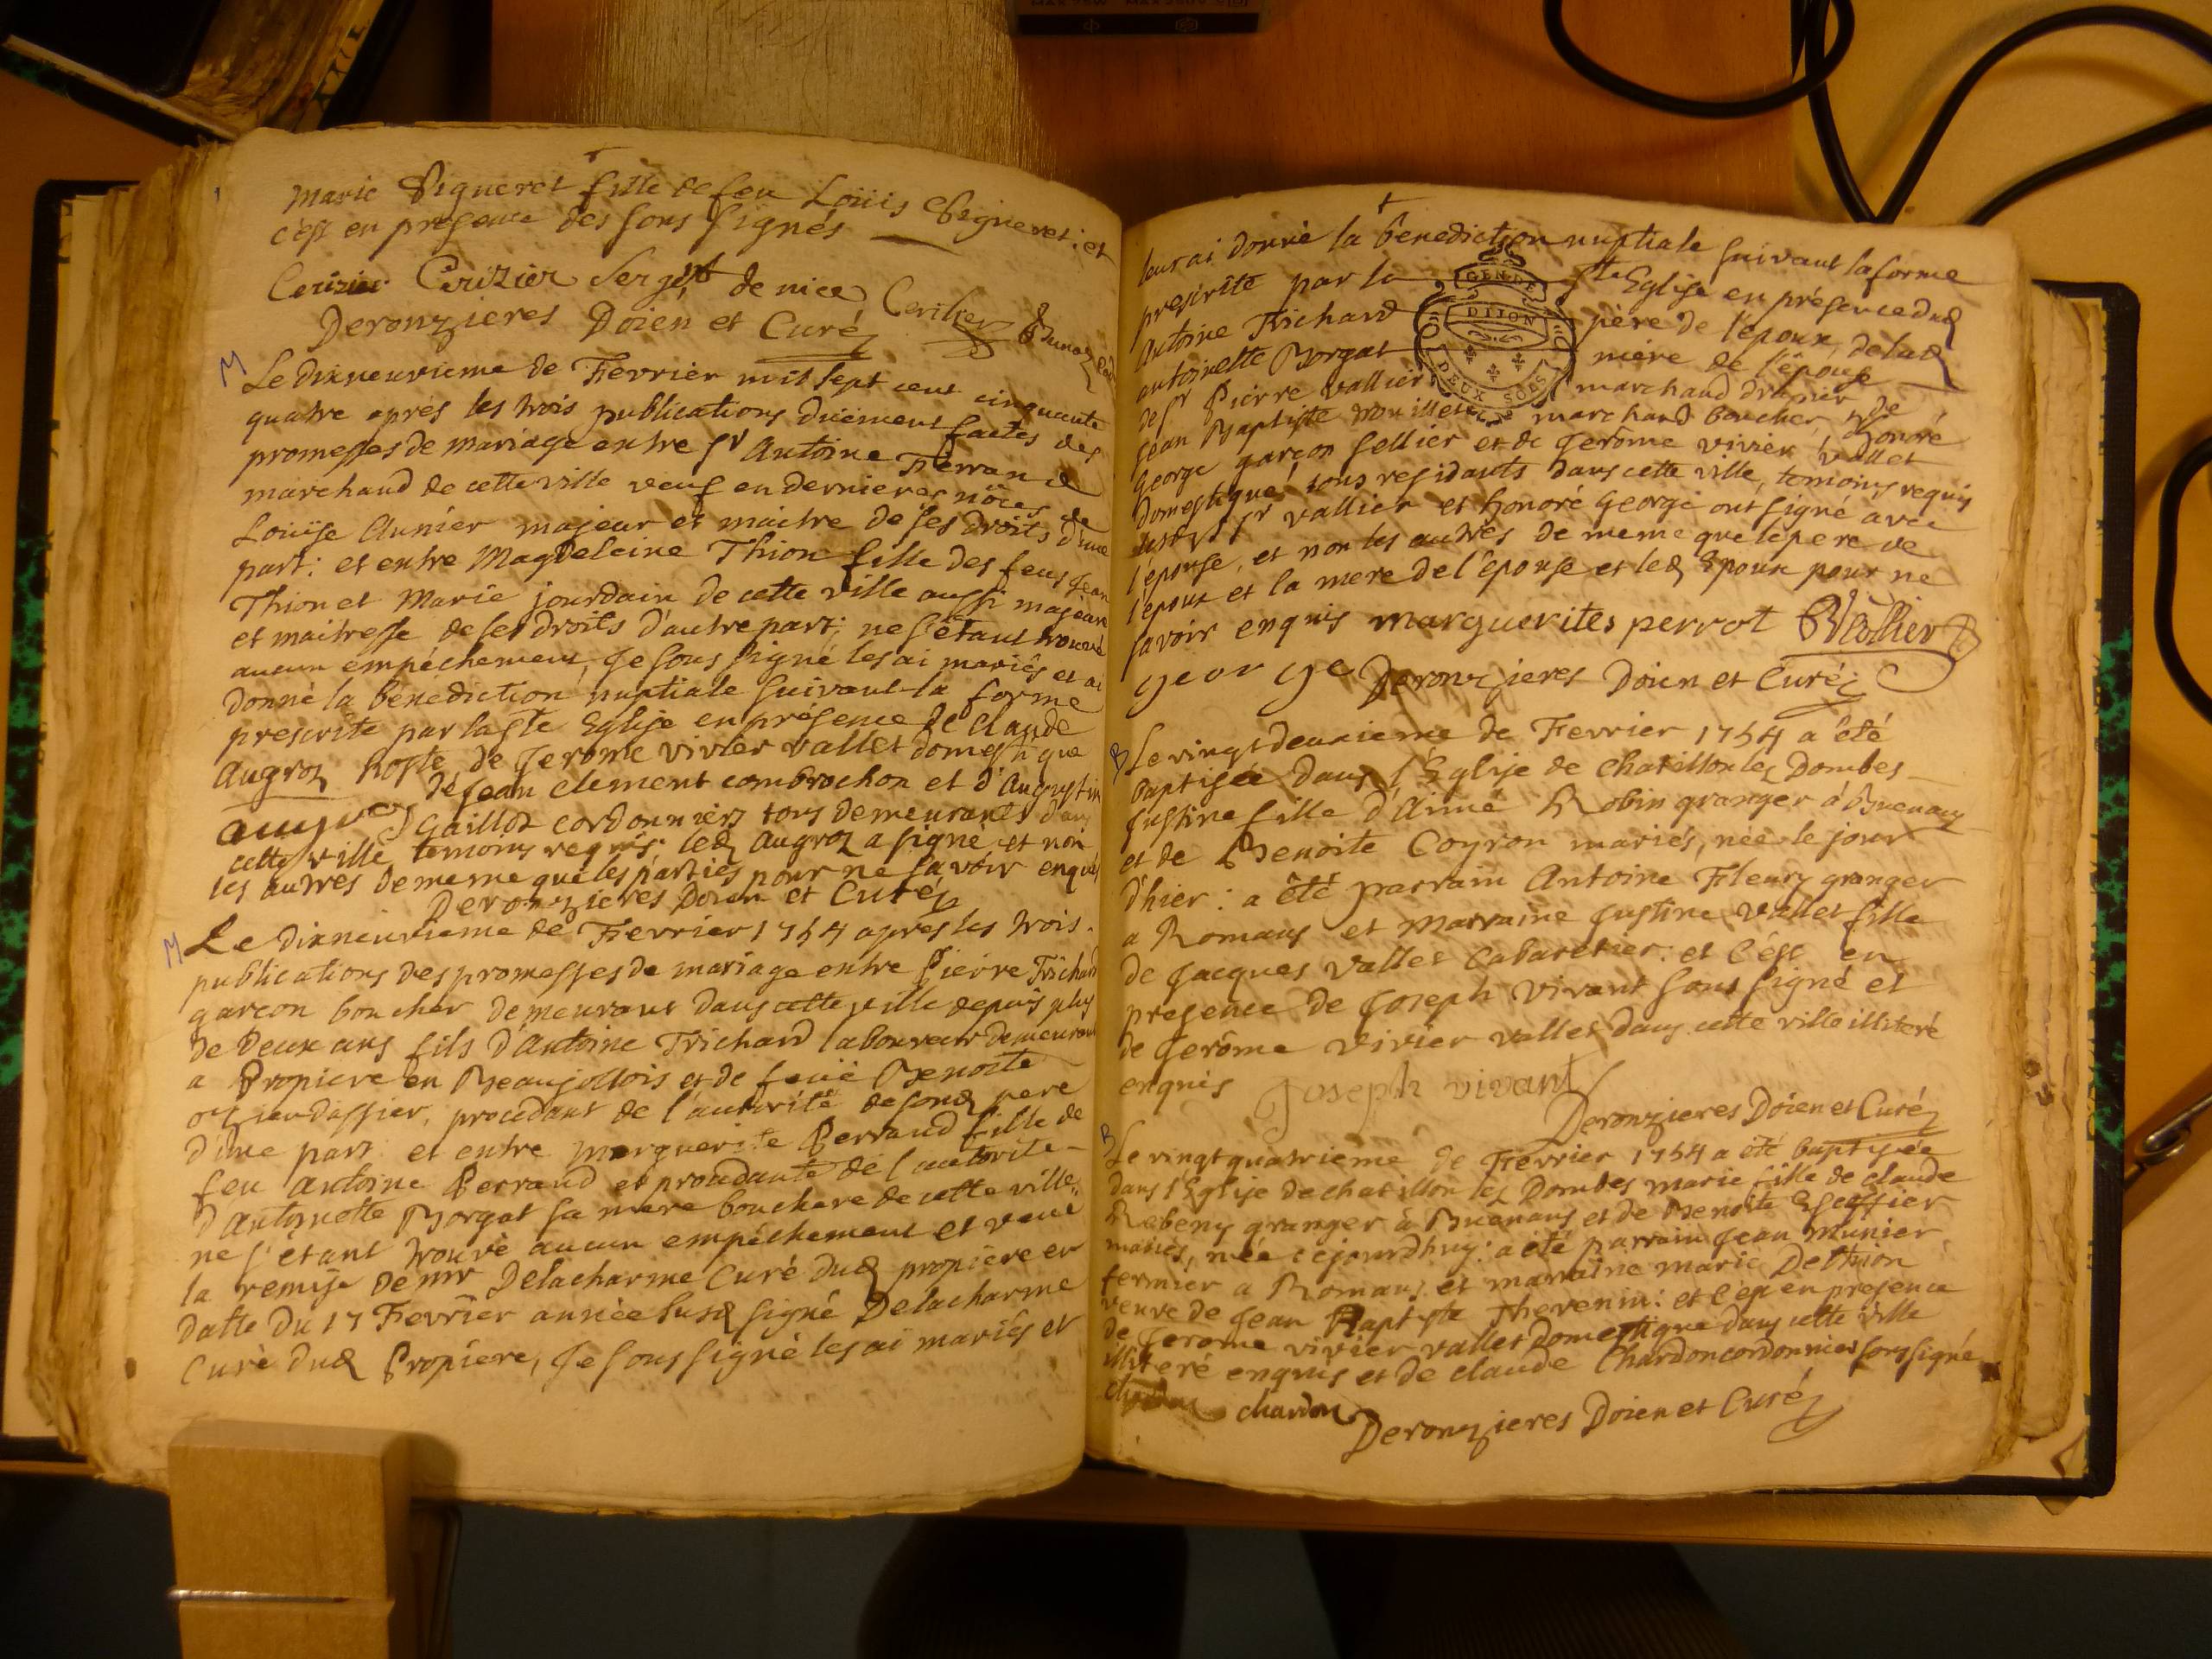 Marie Vigneret fille de feu Loüis Vigneret: et
c'est en presence des sous signés
Cerizier Cerizier Sergent de nice Cerilier
Deronzieres Doien et Curé
M
Le dixneuvieme de Fevrier mil sept cent cinquante
quatre après les trois publications duëment faites des
promesses de mariage entre Sr Antoine Ferrand
marchand de cette ville veuf en dernieres nôces de
Loüise Aunier majeur et maitre de ses droits d'une
part: et entre Magdeleine Thion fille des feus Jean
Thion et Marie jourdain de cette ville aussi majeure
et maitresse de ses droits d'autre part; ne s'étant trouvé
aucun empéchement, Je sous signé les ai mariés et ai
donné la benediction nuptiale suivant la forme
prescrite par la ste Eglise en présence de Claude
Augroz hoste de Jerome vivier vallet domestique
de Jean Clement combrochon et d'Augustin
augros Gaillot cordonniers tous demeurants dans
cette ville, temoins requis: led Augroz a signé, et non
les autres de meme que les parties pour ne savoir enquis
Deronzieres Doien et Curé
M
Le dixneuvieme de Fevrier 1754 apres les trois
publications des promesses de mariage entre Pierre Trichard
garcon boucher demeurant dans cette ville depuis plus
de Deux ans fils d'Antoine Trichard laboureur demeurant
a Propiere en Beaujollois et de feüe Benoite
procedant de l'autorité de sond pere
d'une part et entre Marguerite Perraud fille de
feu Antoine Perraud et procedante de l'autorité
d'Antoinette Borgat sa mere bouchere de cette ville,
ne s'étant trouvé aucun empéchement et veüe
la remise de mr Delacharme Curé dud propiere en
datte du 17 Fevrier année susd signé Delacharme
Curé dud Propiere, Je sous signé les ai mariés et
leur ai donné la benediction nuptiale suivant la forme
prescrite par la ste Eglise en présence dud
Antoine Trichard père de l'epoux, de lad
antoinette Borgat mére de l'épouse
de sr Pierre Vallier marchand drapier
Jean Baptiste marchand boucher, de honoré
George garçon sellier et de Jerôme vivier vallet
domestique, tous residants dans cette ville, temoins requis
sr Vallier et honoré George ont signé avec
l'épouse, et non les autres de meme que le pere de
l'époux et la mere de l'épouse et led Epoux pour ne
savoir enquis marguerites perrot Vallier
george Deronzieres Doien et Curé
B
Le vingt deuxieme de Fevrier 1754 a été
baptisée dans l'Eglise de chatillon les Dombes
Justine fille d'Aimé Robin granger à Buenans
et de Benoite Coyron mariés, née le jour
d'hier: a été parrain Antoine Fleury granger
a Romans et Marraine Justine Vallet fille
de Jacques Vallet Cabaretier: et c'est en
presence de Joseph Vivant sous signé et
de Jerôme Vivier Vallet dans cette ville illiteré
enquis Joseph vivant
Deronzieres Doien et Curé
B
Le vingt quatrieme de Fevrier 1754 a été baptisée
dans l'Eglise de chatillon les Dombes marie fille de claude
Rebeny granger à Buenans et de Benoite Escoffier
mariés, née cejourdhuy: a été parrain Jean Munier
fermier a Romans et marraine marie Dethion
veuve de Jean Baptiste Thevenin: et c'est en presence
de Jerome vivier vallet Domestique dans cette ville
illiteré enquis et de claude Chardon cordonnier sous signé
chardon Deronzieres Doien et Curé
GEN. DE
DIJON
DEUX SOLS